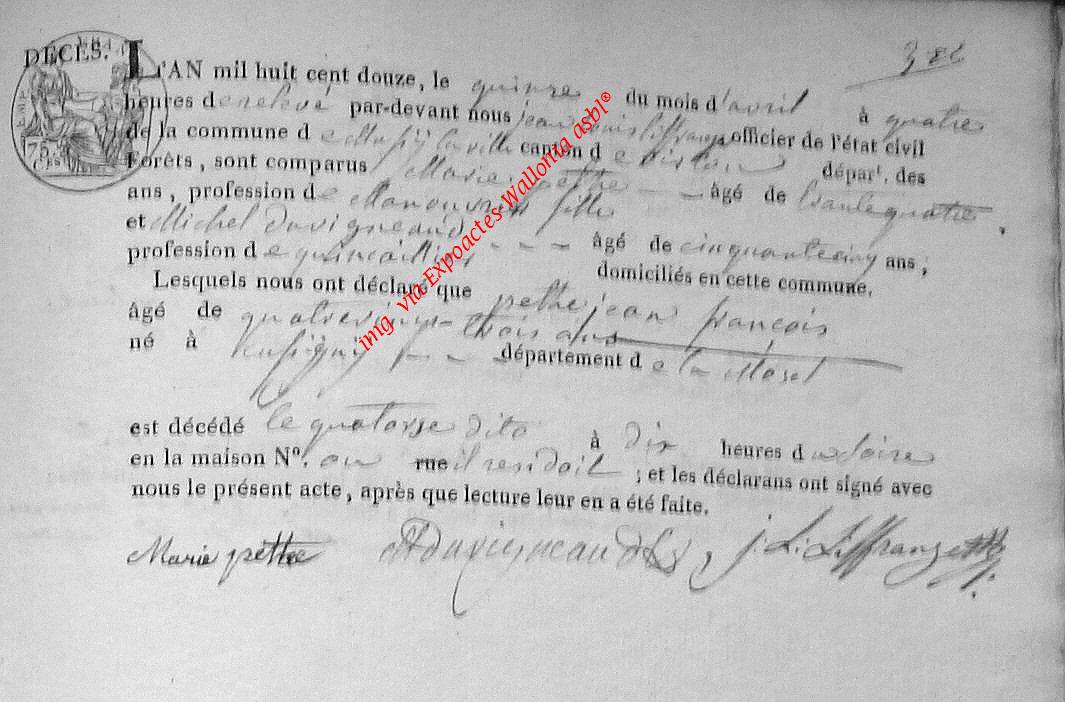 382
DÉCÈS. L'AN mil huit cent douze, le quinze du mois d'avril à quatre
heures de relevé par-devant nous jean louis officier de l'état civil
de la commune de Mussÿ la ville canton de virton départ. des
Forêts, sont comparus Marie pethe âgé de trante quatre
ans, profession de Manouvrier fille
et Michel Duvigneaud âgé de cinquante cinq ans;
profession de quincaillier domiciliés en cette commune.
Lesquels nous ont déclaré que pethe jean françois
âgé de quatrevingt-trois ans
né à département de la Mosel
est décédé le quatorse dito à dix heures du soire
en la maison N°. ou rue il residoit; et les déclarans ont signé avec
nous le présent acte, après que lecture leur en a été faite.
Marie pethe Duvigneaud J. L. Liffrange
img via Expoactes Wallonia asbl®